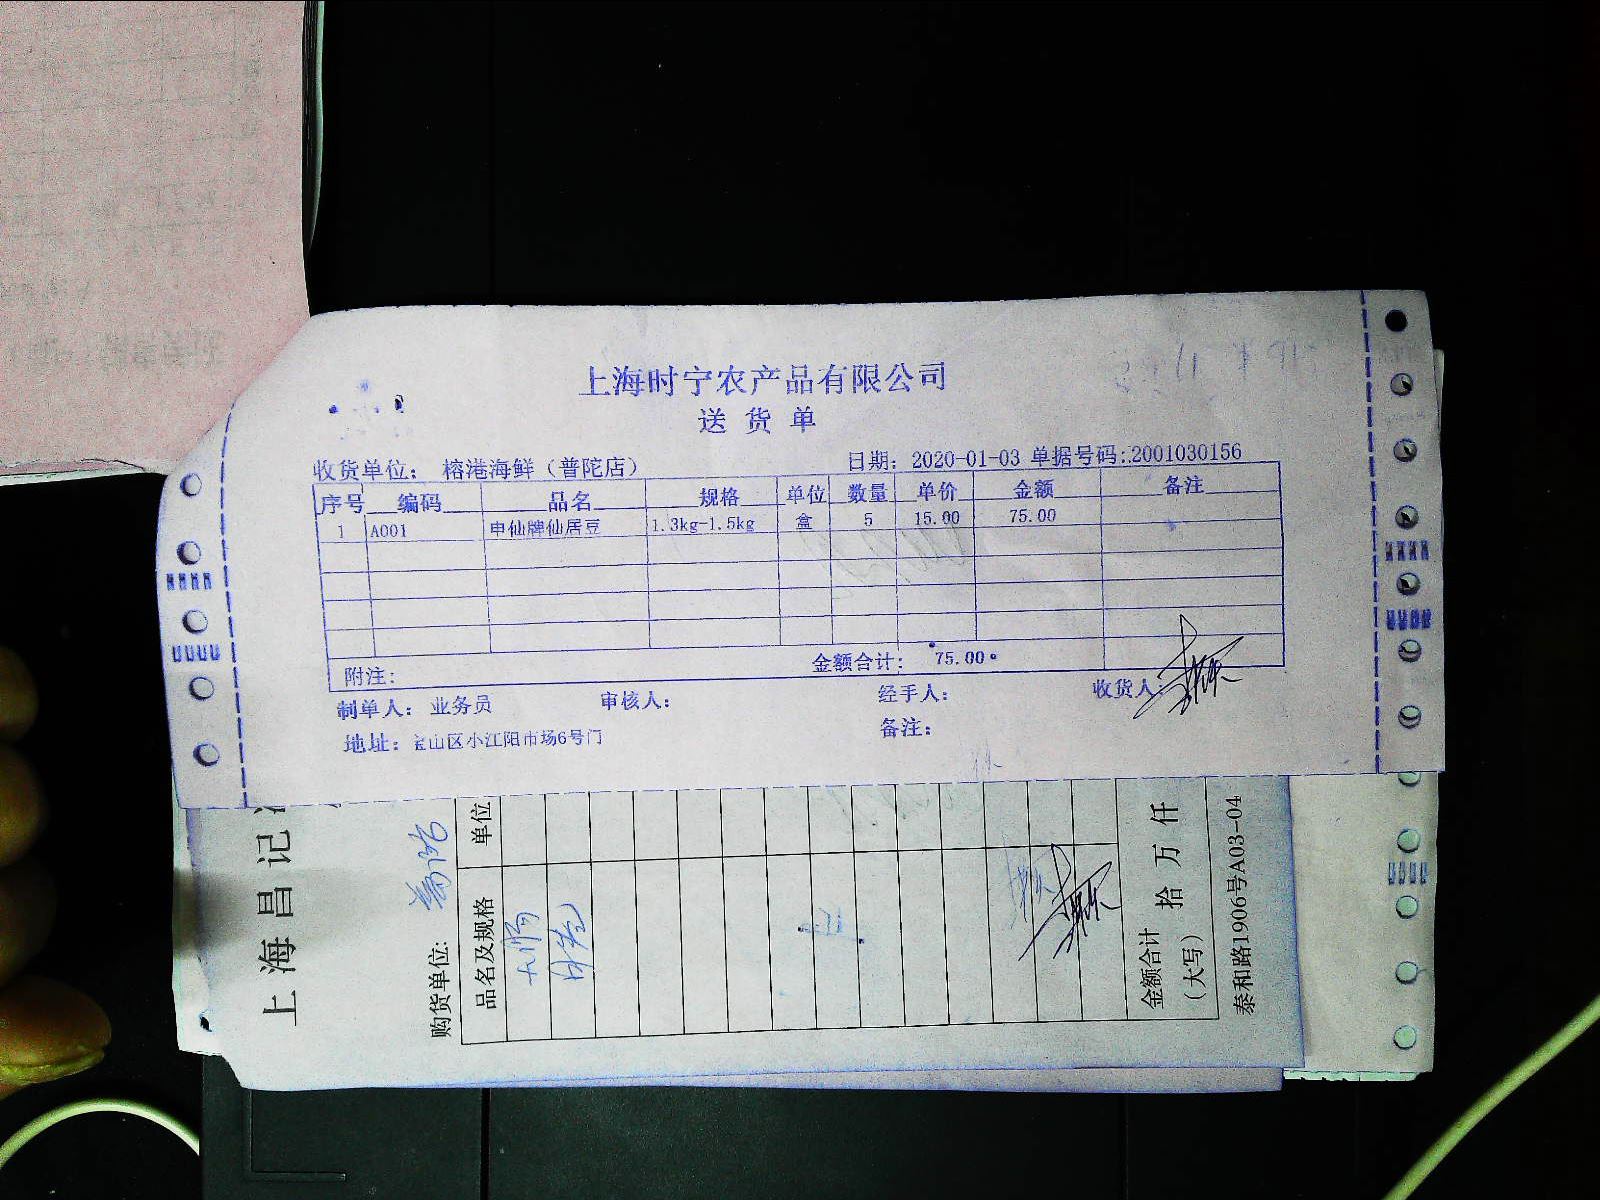 上海时宁农产品有限公司
送货单
收货单位: 榕港海鲜（普陀店） 日期: 2020-01-03 单据号码:2001030156
序号 编码 品名 规格 单位 数量 单价 金额 备注
1 A001 申仙牌仙居豆 1.3kg-1.5kg 盒 5 15.00 75.00
附注: 金额合计: 75.00
制单人: 业务员 审核人: 经手人: 收货人:
地址: 宝山区小江阳市场6号门 备注:
上海昌记
购货单位: 普陀
品名及规格 单位
大肠
金额合计（大写） 拾 万 仟
泰和路1906号A03-04